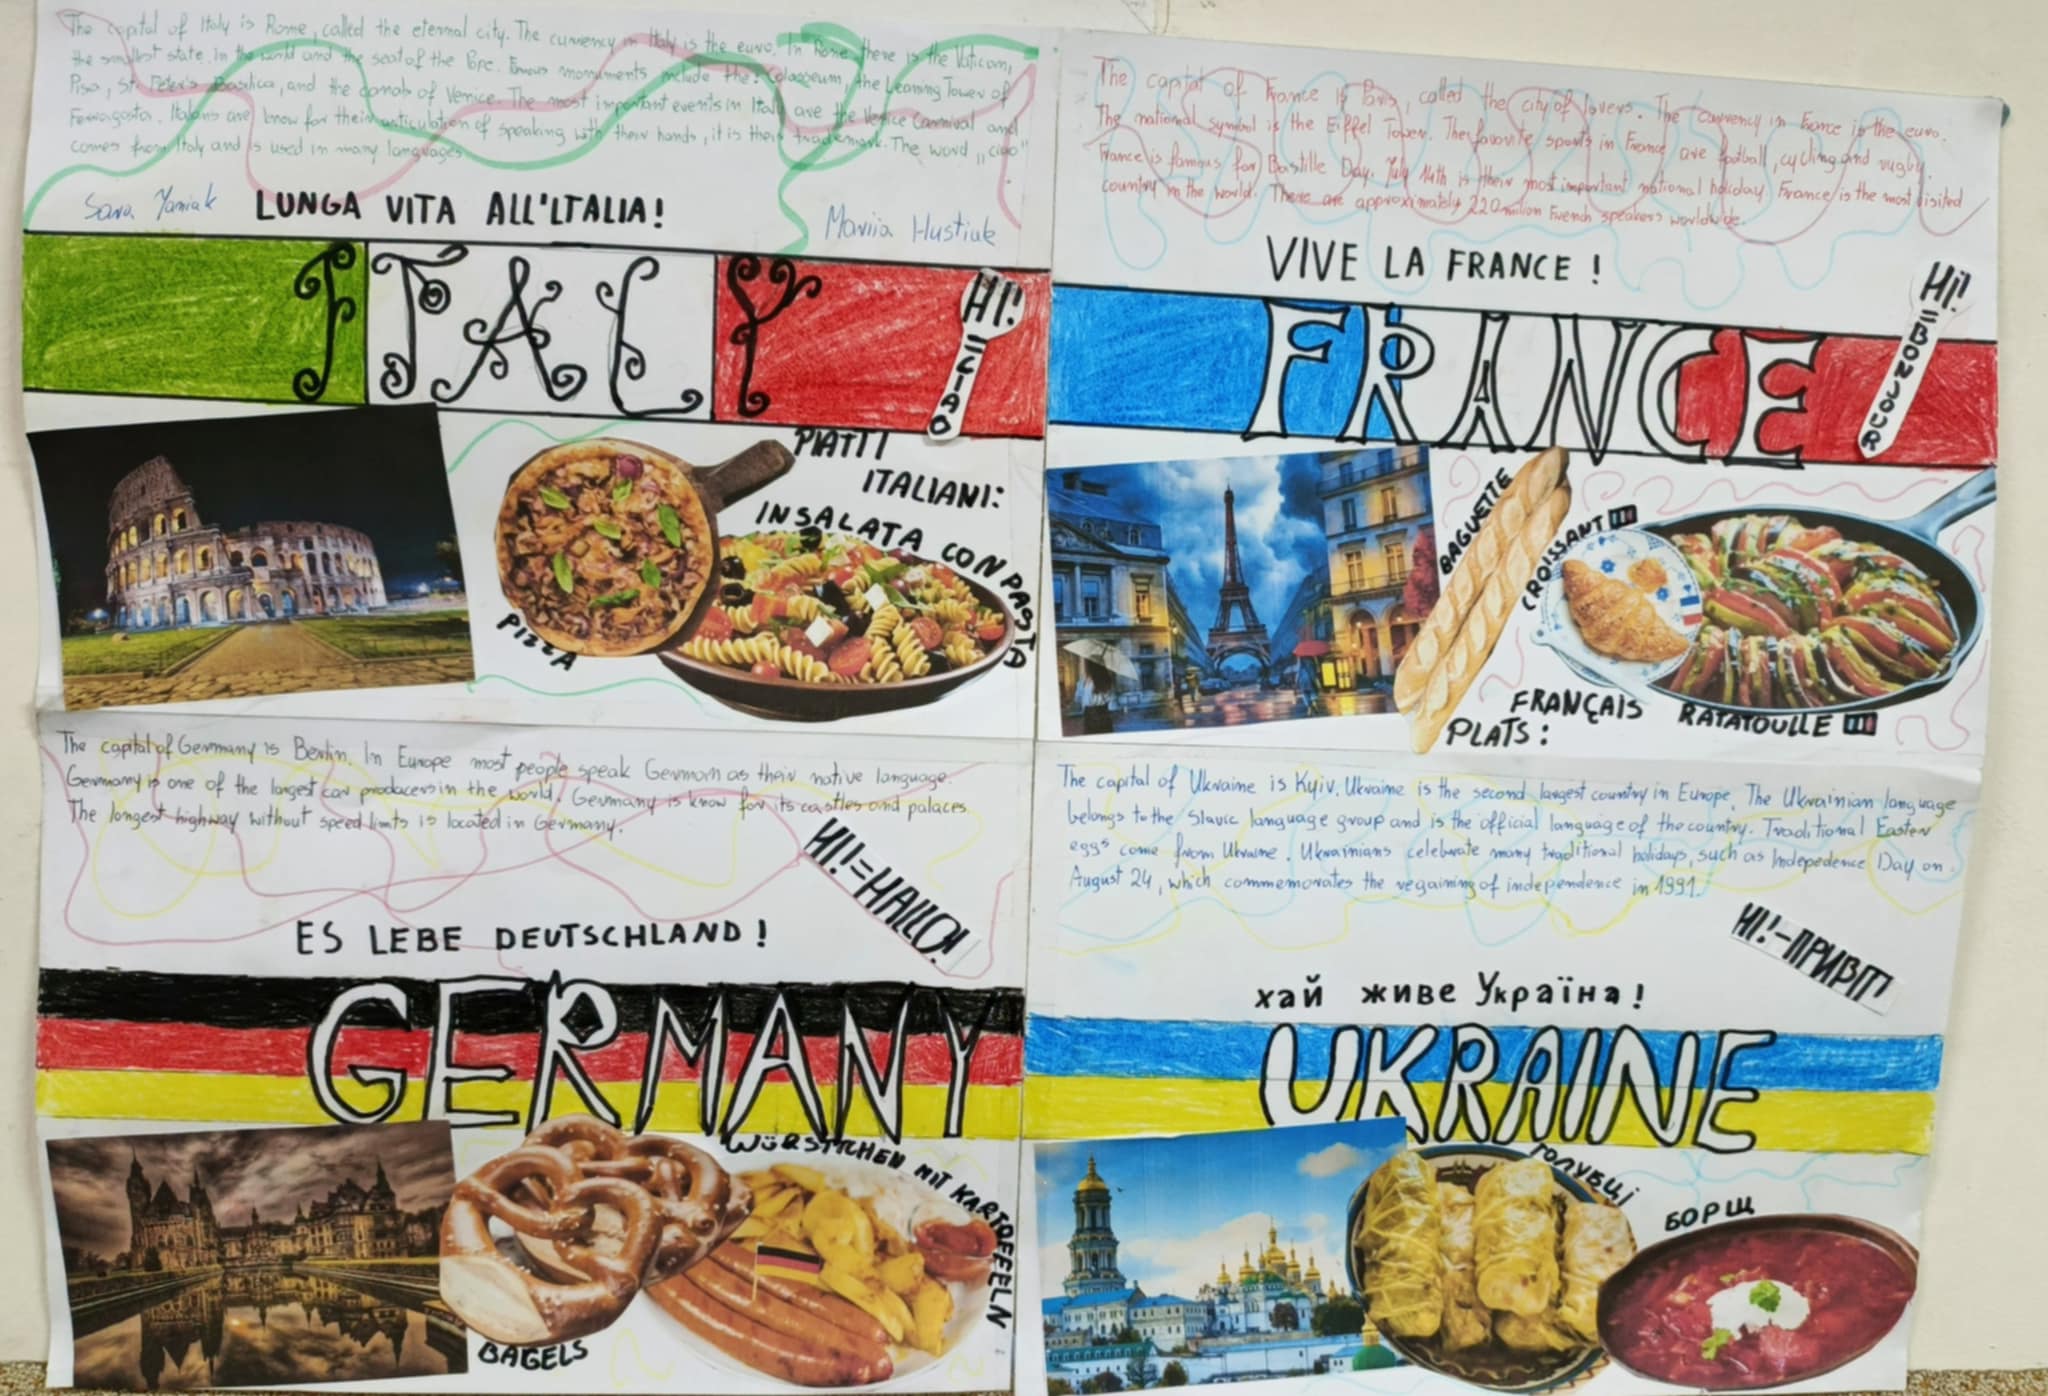 The capital of Italy is Rome, called the eternal city. The currency in Italy is the euro. In Rome there is the Vatican,
the smallest state in the world and the seat of the Pope. Famous monuments include the: Colosseum, the Leaning Tower of
Pisa, St. Peter's Basilica, and the canals of Venice. The most important events in Italy are the Venice Carnival and
Ferragosta. Italians are know for their articulation of speaking with their hands, it is their trademark. The word ,,ciao"
comes from Italy and is used in many languages.
Sara Yaniak
LUNGA VITA ALL'LTALIA!
Mariia Hustiuk
ITALY
HI! = CIAO
PIATTI
ITALIANI:
INSALATA CON PASTD
PIZZA
The capital of France is Paris, called the city of lovers. The currency in France is the euro.
The national symbol is the Eiffel Tower. The favorite sports in France are football, cycling and rugby.
France is famous for Bastille Day. July 14th is their most important national holiday. France is the most visited
country in the world. There are approximately 220 milion French speakers worldwide.
VIVE LA FRANCE!
FRANCE
HI! = BONJOUR
BAGUETTE
CROISSANT
FRANÇAIS
PLATS:
RATATOULLE
The capital of Germany is Berlin. In Europe most people speak German as their native language.
Germany is one of the largest car producers in the world. Germany is know for its castles and palaces.
The longest highway without speed limits is located in Germany.
HI!=HALLO!
ES LEBE DEUTSCHLAND!
GERMANY
WÜRSTTCHEN MIT KARTOFFELN
BAGELS
The capital of Ukraine is Kyiv. Ukraine is the second largest country in Europe. The Ukrainian language
belongs to the Slavic language group and is the official language of the country. Traditional Easter
eggs come from Ukraine. Ukrainians celebrate many traditional holidays, such as Indepedence Day on
August 24, which commemorates the regaining of independence in 1991.
HI!-ПРИВІТ
хай живе Україна!
UKRAINE
ГОЛУБЦІ
БОРЩ